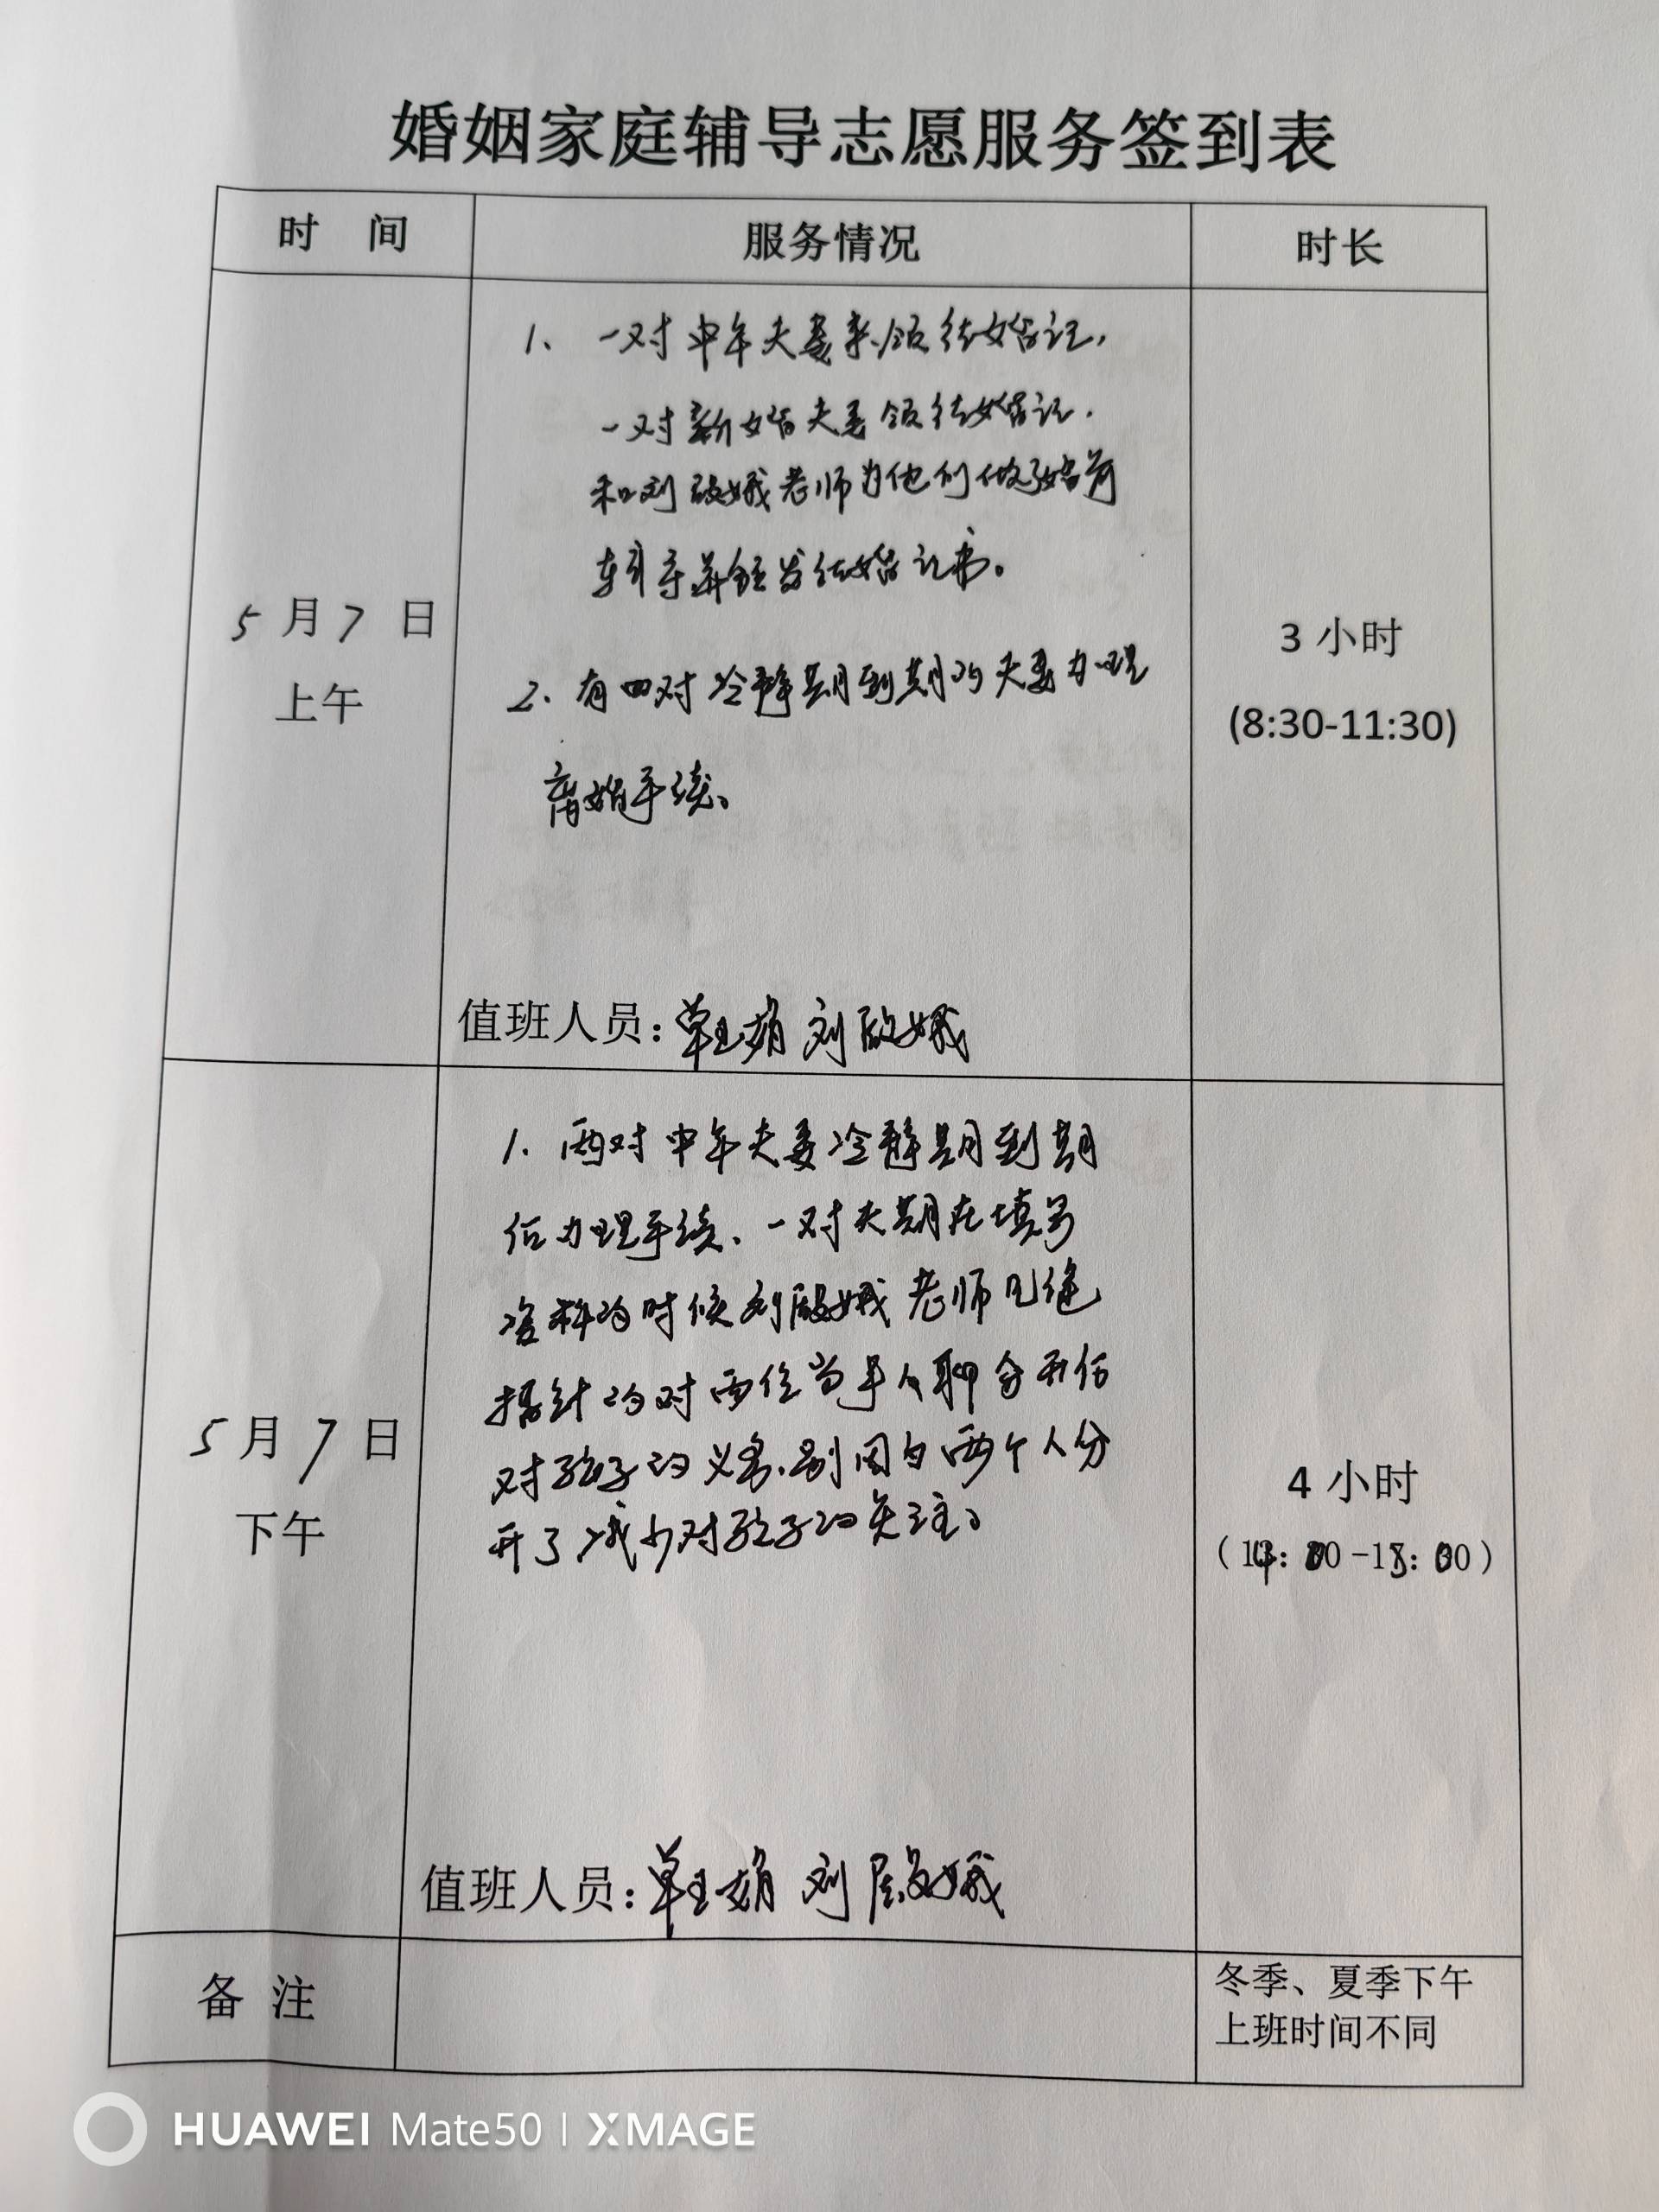 婚姻家庭辅导志愿服务签到表
时 间 服务情况 时长
5月7日
上午
1、一对中年夫妻来领结婚证，
一对新婚夫妻领结婚证.
和刘殿娥老师为他们做了婚前
辅导并颁发结婚证书。
2、有四对冷静期到期的夫妻办理
离婚手续。
值班人员：单玉娟 刘殿娥
3 小时
(8:30-11:30)
5月7日
下午
1、两对中年夫妻冷静期到期
后办理手续、一对夫妻在填写
资料的时候刘殿娥老师见缝
插针的对两位当事人聊分开后
对孩子的义务.别因为两个人分
开了减少对孩子的关注。
值班人员：单玉娟 刘殿娥
4 小时
（14：00-18：00）
备 注
冬季、夏季下午
上班时间不同
HUAWEI Mate50 | XMAGE